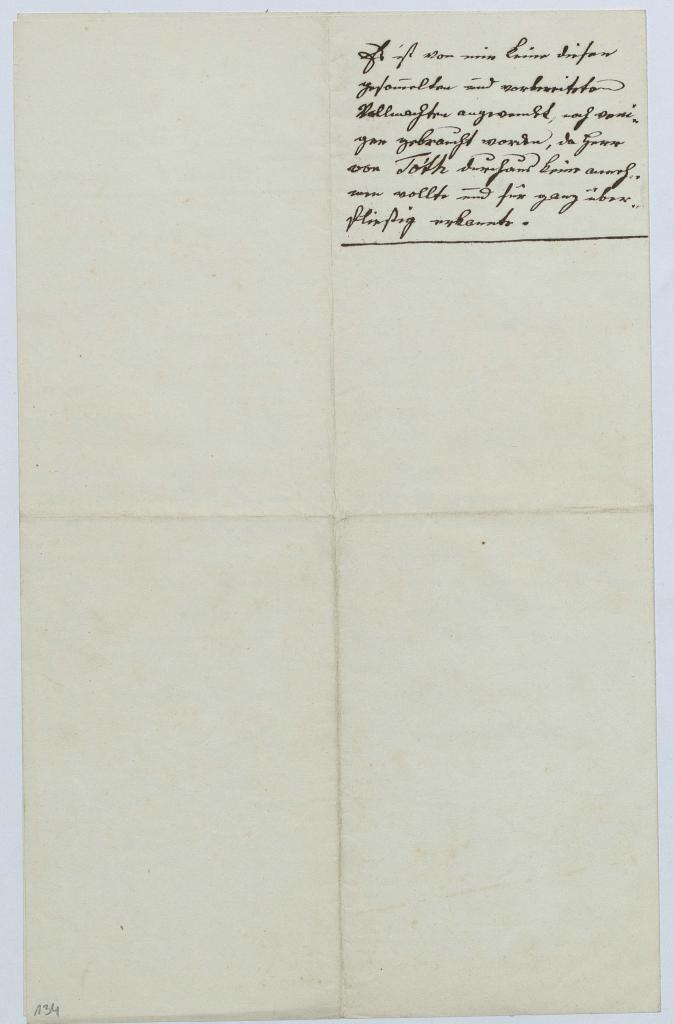 Es ist von mir keine dieser
gesam̅elten und vorbereiteten
Vollmachten angewendet, noch
gebraucht worden, da Herr
von Tóth durchaus keine anneh-
men wollte und für ganz über-
flüssig erkannte.
134